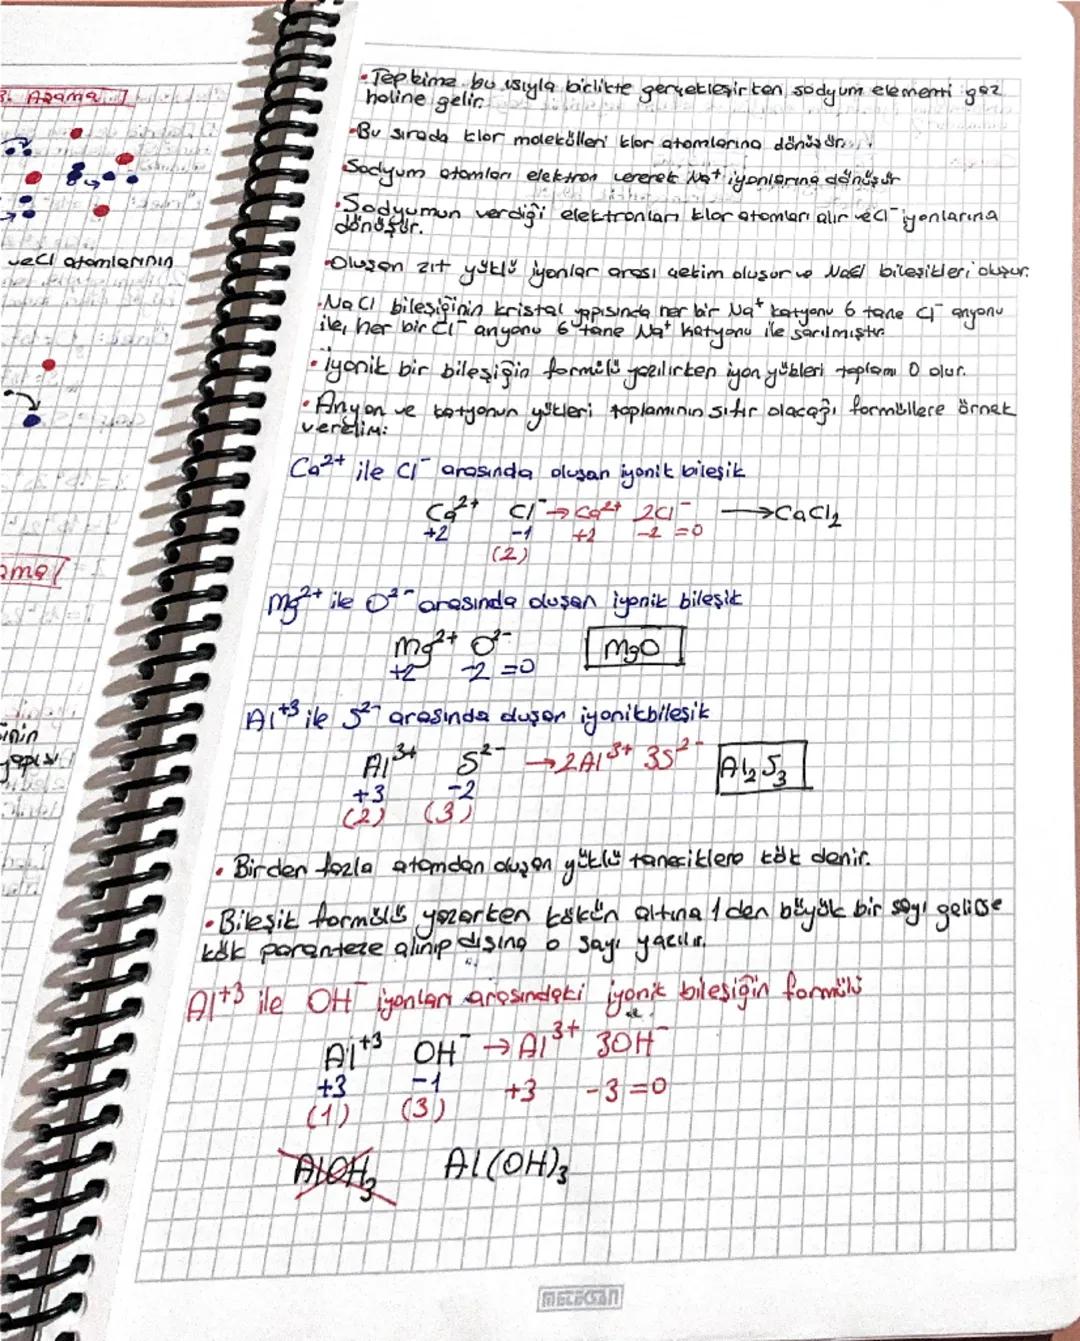 3. Aşama
ve Cl atomlarının
•Tepkime bu ısıyla birlikte gerçekleşirken sodyum elementi gaz
haline gelir.
•Bu sırada klor molekülleri klor atomlarına dönüşür.
Sodyum atomları elektron vererek Na+ iyonlarına dönüşür
•Sodyumun verdiği elektronları klor atomları alır ve Cl⁻ iyonlarına
dönüşür.
•Oluşan zıt yüklü iyonlar arası çekim oluşur ve NaCl bileşikleri oluşur.
•NaCl bileşiğinin kristal yapısında her bir Na⁺ katyonu 6 tane Cl⁻ anyonu
ile, her bir Cl⁻ anyonu 6 tane Na⁺ katyonu ile sarılmıştır
• iyonik bir bileşiğin formülü yazılırken iyon yükleri toplamı 0 olur.
• Anyon ve katyonun yükleri toplamının sıfır olacağı formüllere örnek
verelim:
Ca²⁺ ile Cl⁻ arasında oluşan iyonik bileşik
Ca²⁺ Cl⁻ → Ca²⁺ 2Cl⁻ → CaCl₂
+2 -1 +2 -2 =0
(2)
Mg²⁺ ile O²⁻ arasında oluşan iyonik bileşik
Mg²⁺ O²⁻ MgO
+2 -2 =0
Al⁺³ ile S²⁻ arasında oluşan iyonik bileşik
Al³⁺ S²⁻ → 2Al³⁺ 3S²⁻ Al₂S₃
+3 -2
(2) (3)
• Birden fazla atomdan oluşan yüklü taneciklere kök denir.
•Bileşik formülü yazarken kökün altına 1 den büyük bir sayı gelirse
kök paranteze alınıp dışına o sayı yazılır.
Al⁺³ ile OH⁻ iyonları arasındaki iyonik bileşiğin formülü
Al⁺³ OH⁻ → Al³⁺ 3OH⁻
+3 -1 +3 -3 =0
(1) (3)
AlOH₃ Al(OH)₃